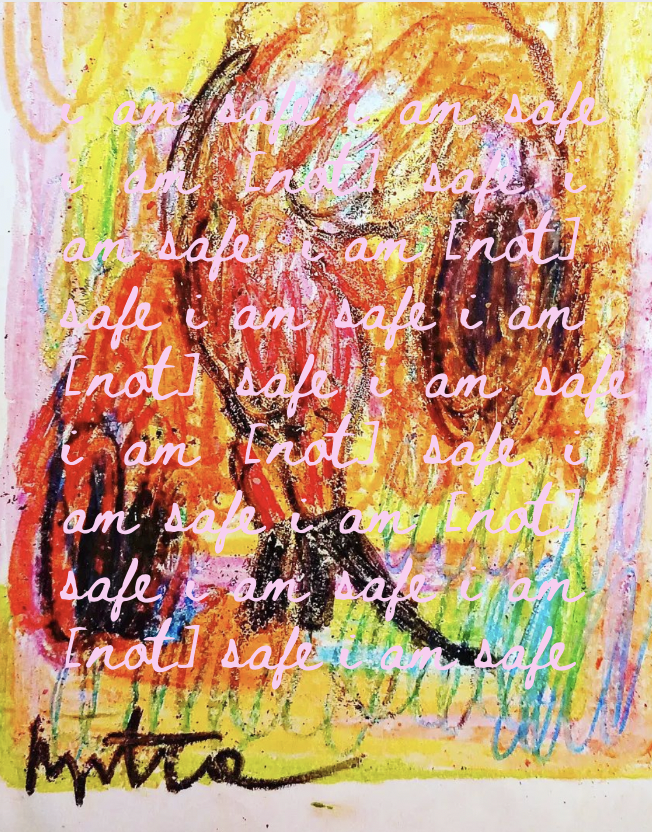 i am safe i am safe
i am [not] safe i
am safe i am [not]
safe i am safe i am
[not] safe i am safe
i am [not] safe i
am safe i am [not]
safe i am safe i am
[not] safe i am safe